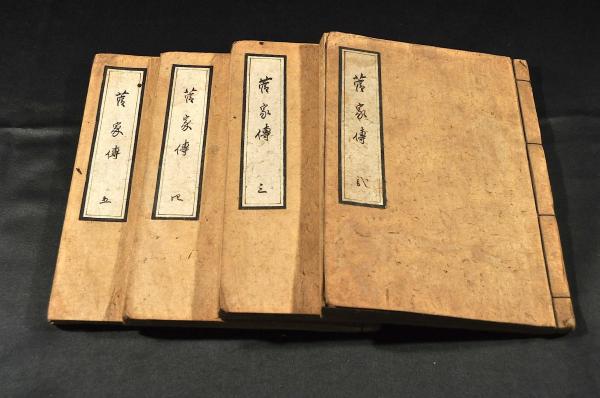 菅家傳 弐
菅家傳 三
菅家傳 四
菅家傳 五